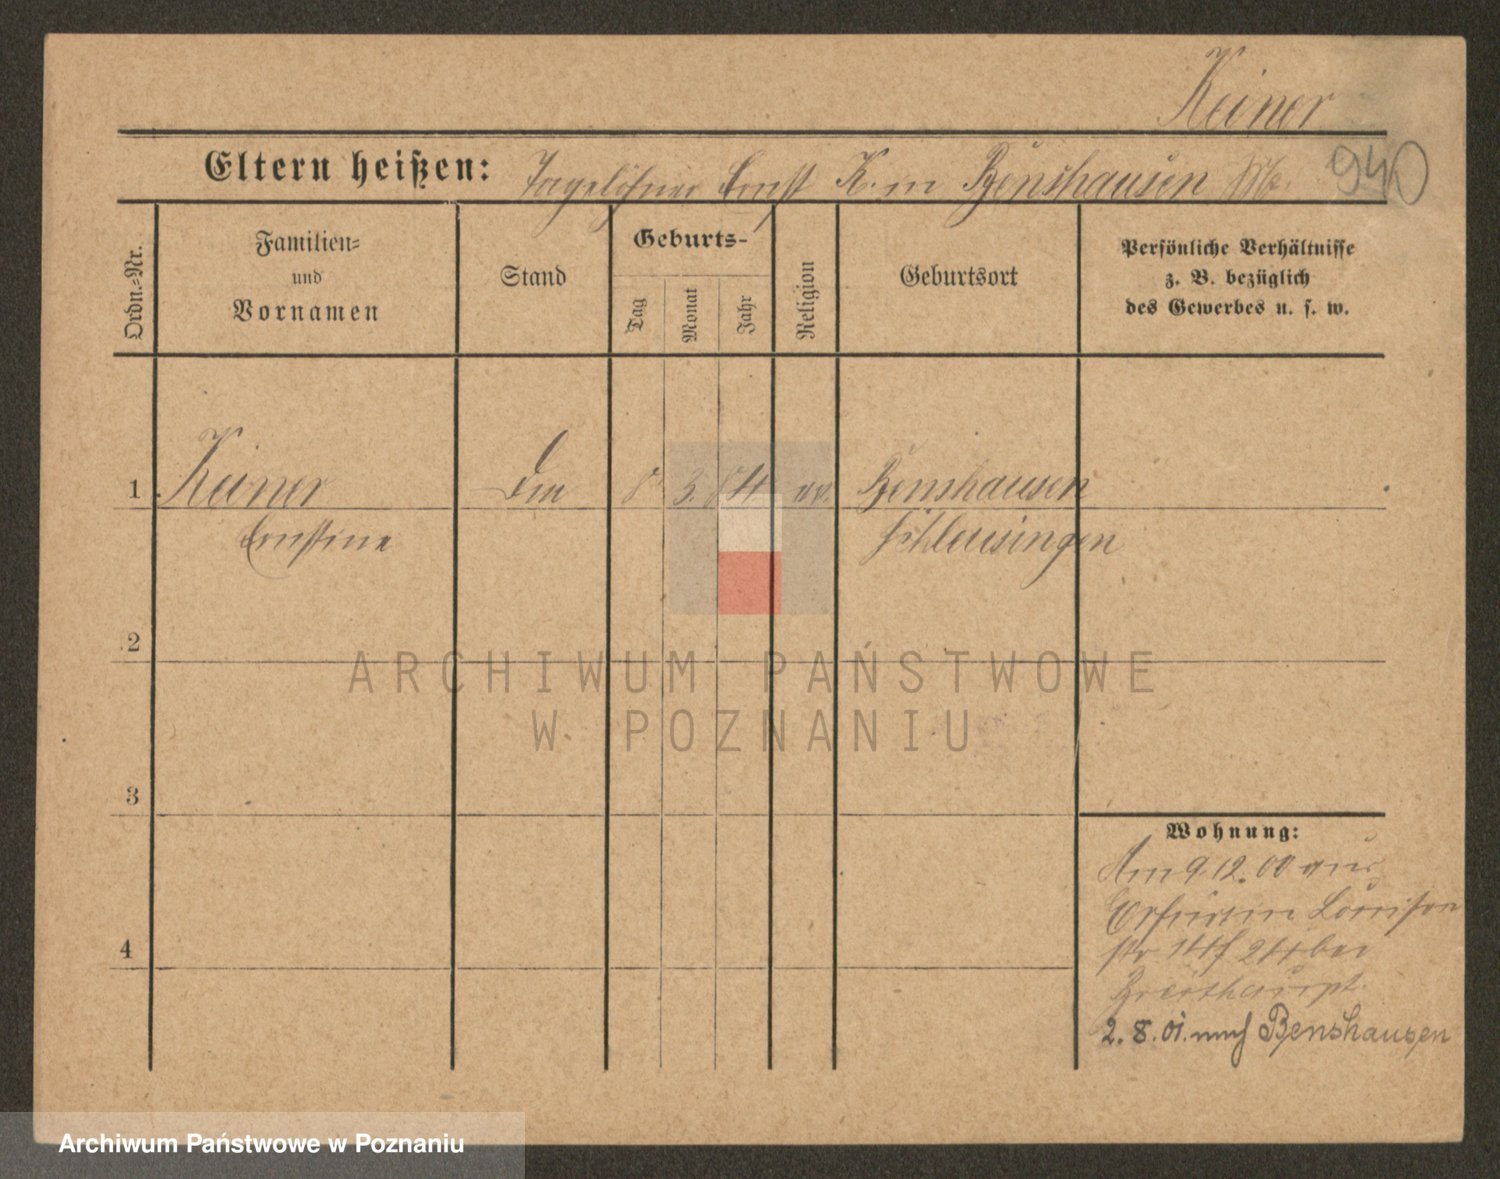 Keiner
940
Eltern heißen: Tagelöhner Ernst K. in Benshausen
Ordn.-Nr.
Familien-
und
Vornamen
Stand
Geburts-
Tag
Monat
Jahr
Religion
Geburtsort
Persönliche Verhältnisse
z. B. bezüglich
des Gewerbes u. s. w.
1 Keiner 8 3. 84 ev. Benshausen
Ernstine Schleusingen
2
ARCHIWUM PAŃSTWOWE
W POZNANIU
3
Wohnung:
Am 9.12.00 aus
Erfurt in Louisen
str 14 bei
4
Breithaupt
2. 8. 01. nach Benshausen
Archiwum Państwowe w Poznaniu